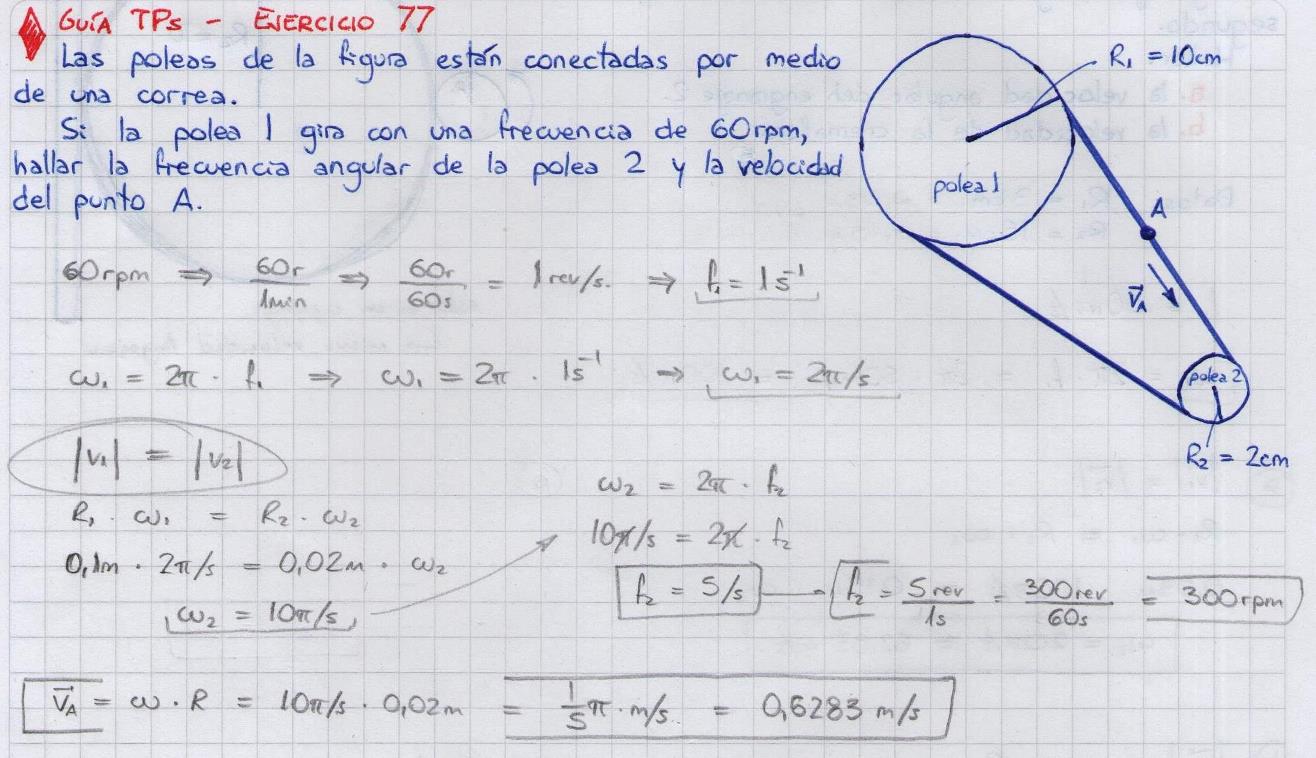 GUÍA TPs - EJERCICIO 77
Las poleas de la figura están conectadas por medio
de una correa.
Si la polea 1 gira con una frecuencia de 60rpm,
hallar la frecuencia angular de la polea 2 y la velocidad
del punto A.
R₁ = 10cm
polea 1
A
V⃗A
polea 2
R₂ = 2cm
60rpm ⇒ 60r/1min ⇒ 60r/60s = 1 rev/s. ⇒ f₁ = 1 s⁻¹
ω₁ = 2π · f₁ ⇒ ω₁ = 2π · 1s⁻¹ → ω₁ = 2π/s
|v₁| = |v₂|
R₁ · ω₁ = R₂ · ω₂
0,1m · 2π/s = 0,02m · ω₂
ω₂ = 10π/s
ω₂ = 2π · f₂
10π/s = 2π · f₂
f₂ = 5/s → f₂ = 5rev/1s = 300rev/60s = 300rpm
V⃗A = ω · R = 10π/s · 0,02m = 1/5 π · m/s = 0,6283 m/s